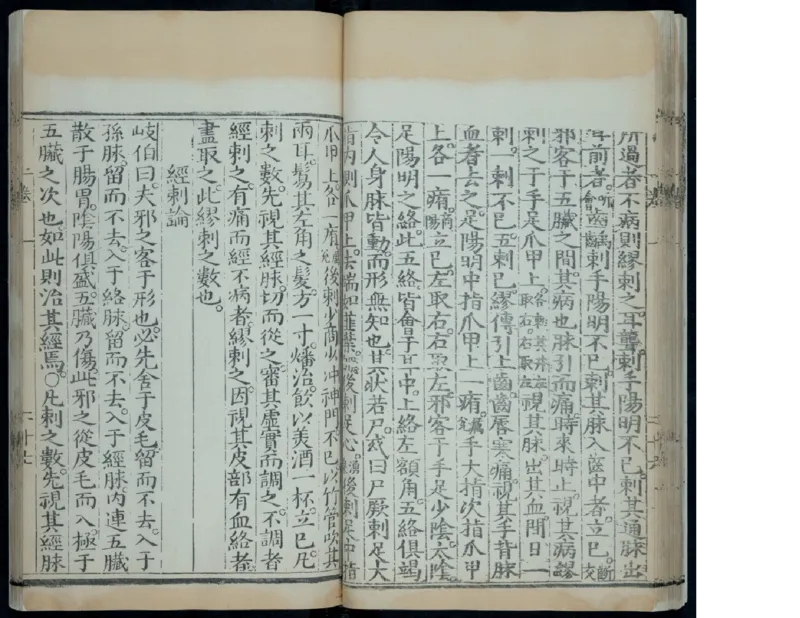 所過者不病則繆刺之耳聾刺手陽明不已刺其通脉出
耳前者齒齲刺手陽明不已刺其脉入齒中者立已
邪客于五臟之間其病也脉引而痛時來時止視其病繆
刺之于手足爪甲上視其脉出其血間日一
刺一刺不已五刺已繆傳引上齒齒唇寒痛視其手背脉
血者去之足陽明中指爪甲上一痏手大指次指爪甲
上各一痏立已左取右右取左邪客于手足少陰太陰
足陽明之絡此五絡皆會于耳中上絡左額角五絡俱竭
令人身脉皆動而形無知也其狀若尸或曰尸厥刺足大
指內側爪甲上去端如韭葉後刺足心後刺足中指
爪甲上各一痏後刺少商少冲神門不已以竹管吹其
兩耳鬄其左角之髮方一寸燔治飲以美酒一杯立已凡
刺之數先視其經脉切而從之審其虛實而調之不調者
經刺之有痛而經不病者繆刺之因視其皮部有血絡者
盡取之此繆刺之數也
經刺論
岐伯曰夫邪之客于形也必先舍于皮毛留而不去入于
孫脉留而不去入于絡脉留而不去入于經脉內連五臟
散于腸胃陰陽俱盛五臟乃傷此邪之從皮毛而入極于
五臟之次也如此則治其經焉○凡刺之數先視其經脉